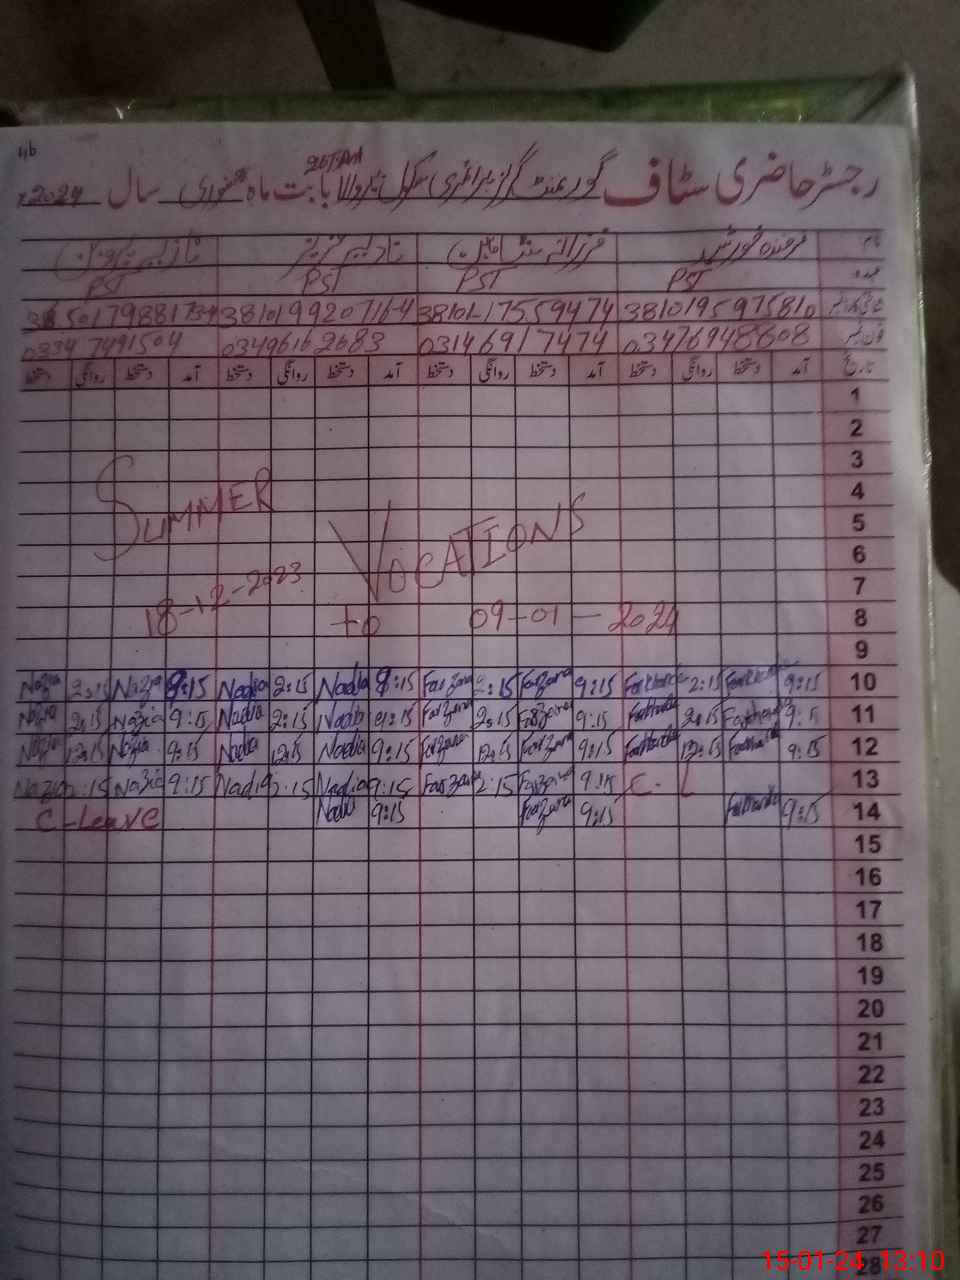 46
رجسٹر حاضری سٹاف گورنمنٹ گرلز پرائمری سکول بابت ماہ جنوری سال 2024
نام فرخندہ خورشید فرزانہ نادیہ نازیہ
عہدہ PST PST PST PST
3810195975810 3810199207164
03476948808 03146917474 03496162683 03347491504
تاریخ آمد دستخط روانگی دستخط آمد دستخط روانگی دستخط آمد دستخط روانگی دستخط آمد دستخط روانگی دستخط
1
2
3
4
SUMMER
5
VOCATIONS
6
7
18-12-2023 to 09-01-2024
8
9
Nazia 2:15 Nazia 9:15 Nadia 2:15 Nadia 9:15 Farzana 2:15 Farzana 9:15 Farkhanda 2:15 Farkhanda 9:15 10
Nazia 2:15 Nazia 9:15 Nadia 2:15 Nadia 9:15 Farzana 2:15 Farzana 9:15 Farkhanda 2:15 Farkhanda 9:15 11
Nazia 12:15 Nazia 9:15 Nadia 12:15 Nadia 9:15 Farzana 12:15 Farzana 9:15 Farkhanda 12:15 Farkhanda 9:15 12
Nazia 2:15 Nazia 9:15 Nadia 2:15 Nadia 9:15 Farzana 2:15 Farzana 9:15 C-L 13
C-Leave Nadia 9:15 Farzana 9:15 Farkhanda 9:15 14
15
16
17
18
19
20
21
22
23
24
25
26
27
28
15-01-24 13:10